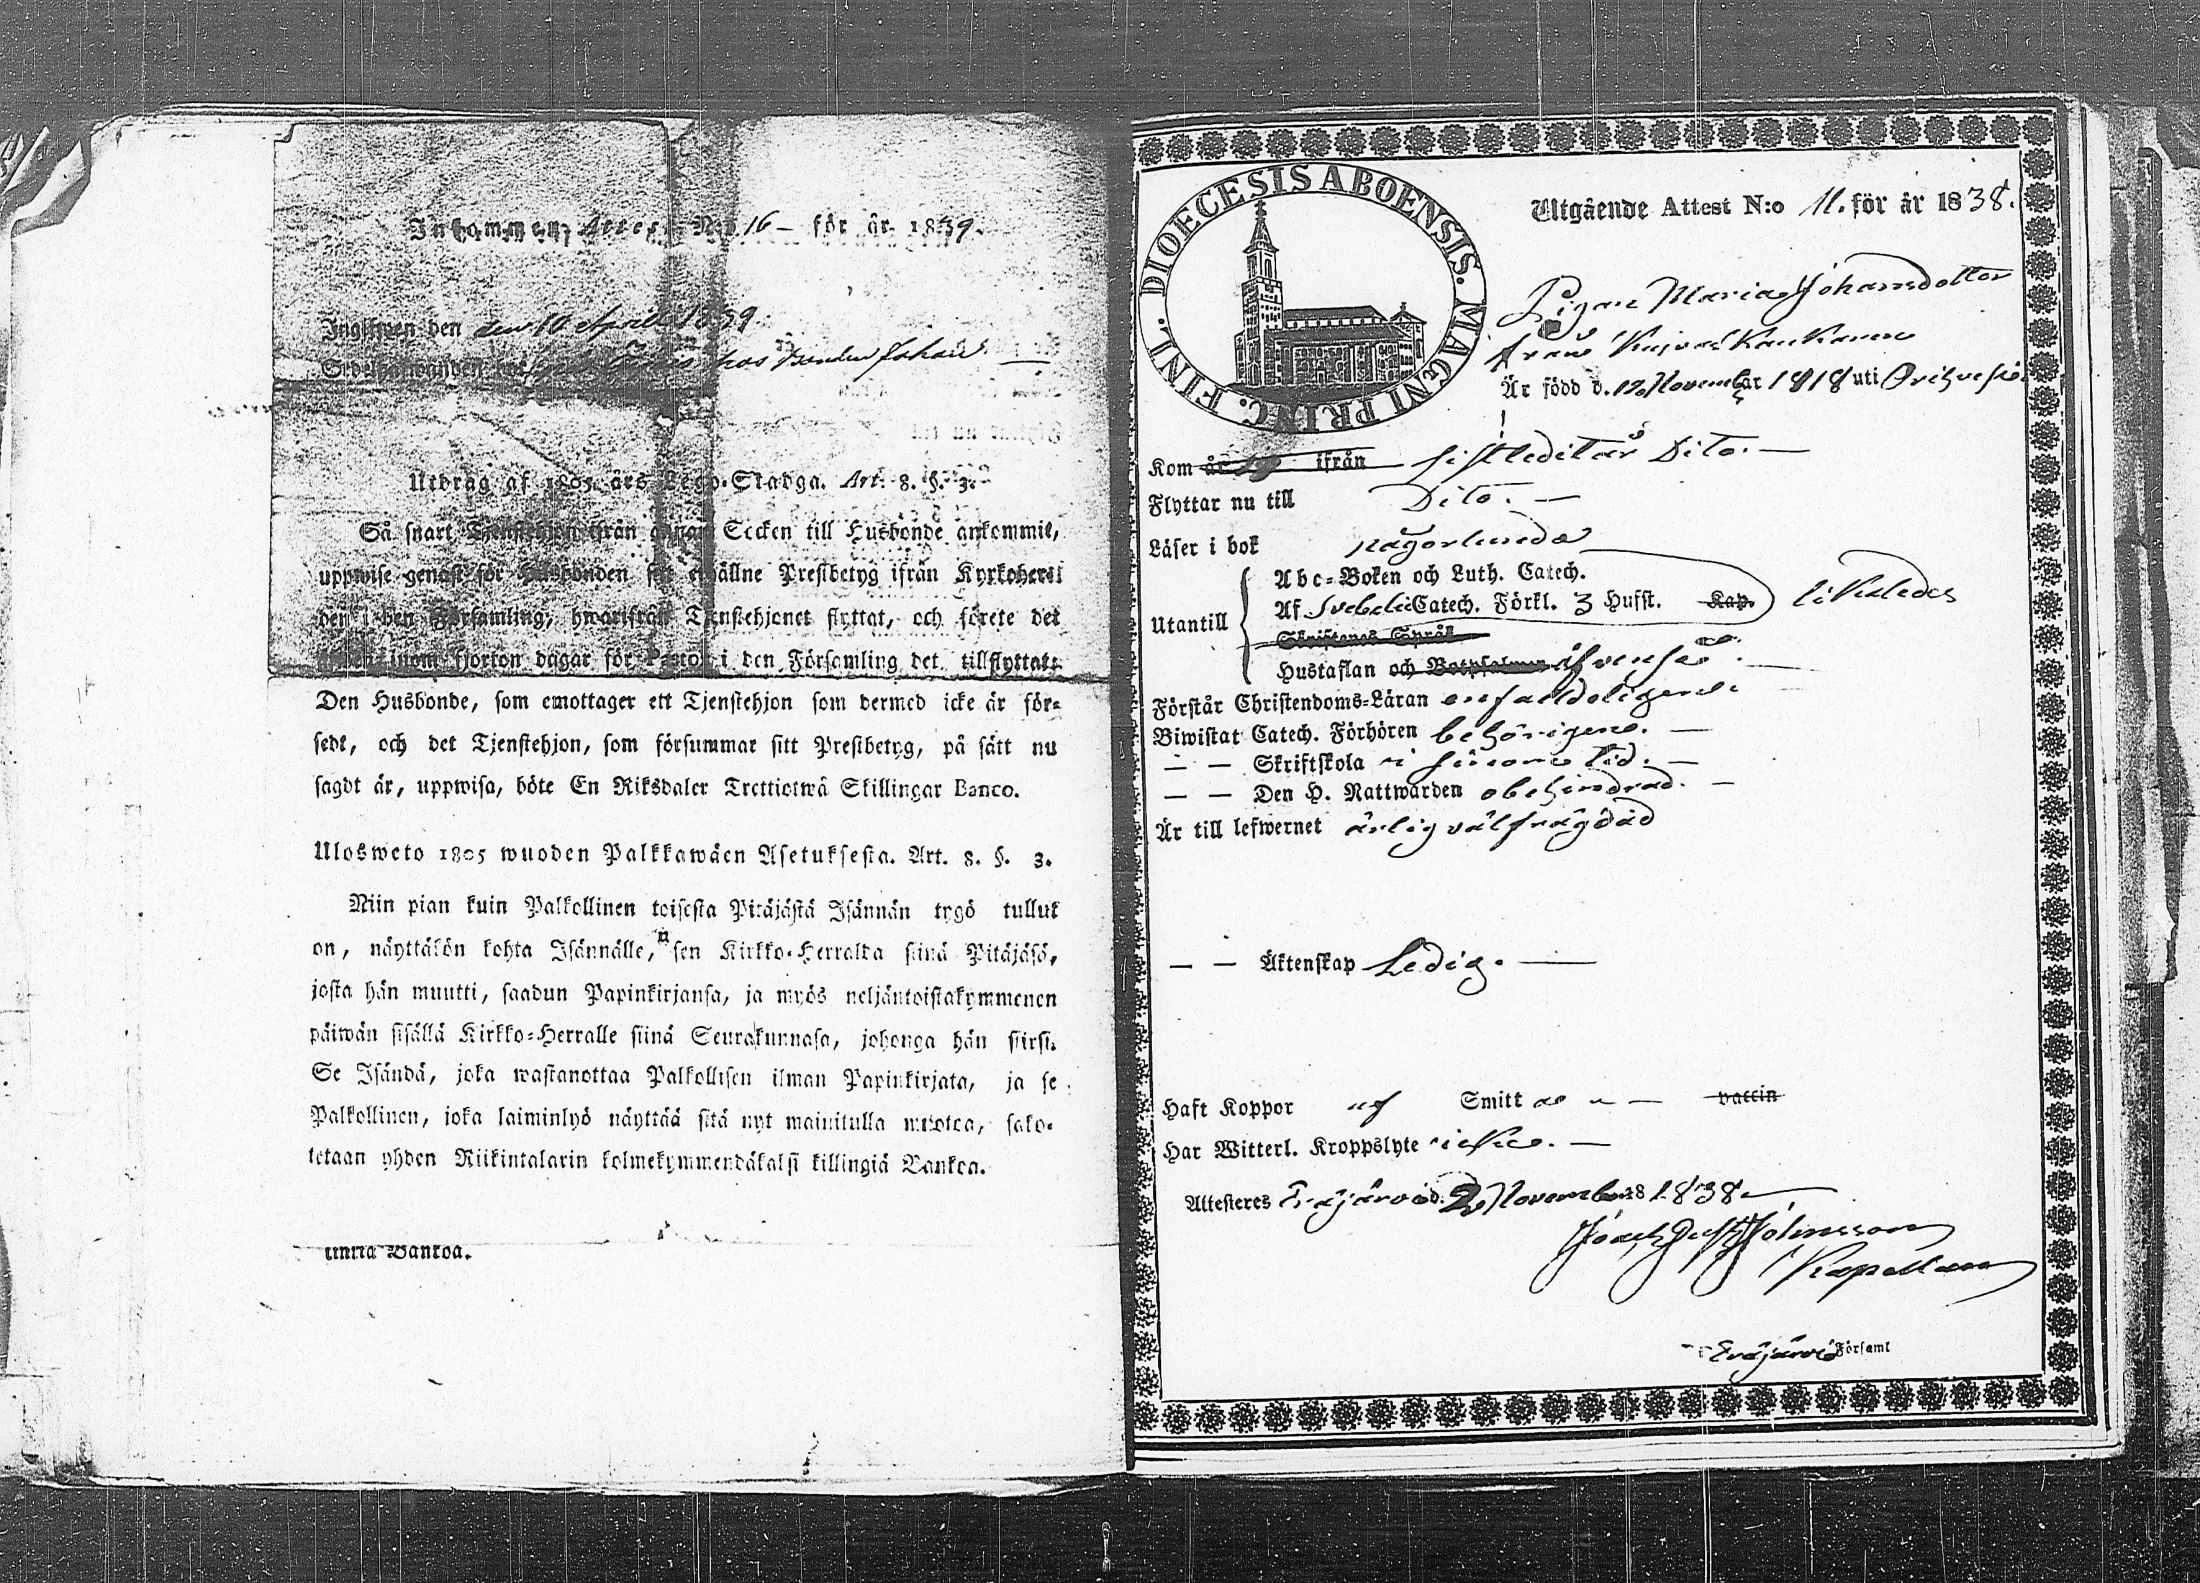 Inkommen Attest N:o 16 – för år 1839.
Ingifwen den den 10 April 1839.
hos Bonden Johan —
Utdrag af 1805 års Lego-Stadga. Art. 8. §. 3.
Så snart Tjenstehjon ifrån annan Socken till Husbonde ankommit,
uppwise genast för Husbonden sitt erhållne Prestbetyg ifrån Kyrkoher-
den i den Församling, hwarifrån Tjenstehjonet flyttat, och förete det
inom fjorton dagar för Pastor i den Församling det tillflyttat.
Den Husbonde, som emottager ett Tjenstehjon som dermed icke är för-
sedt, och det Tjenstehjon, som försummar sitt Prestbetyg, på sätt nu
sagdt är, uppwisa, böte En Riksdaler Trettiotwå Skillingar Banco.
Ulosweto 1805 wuoden Palkkawäen Asetuksesta. Art. 8. §. 3.
Niin pian kuin Palkollinen toisesta Pitäjästä Isännän tygö tullut
on, näyttäkön kohta Isännälle, n sen Kirkko-Herralda siinä Pitäjäsä,
josta hän muutti, saadun Papinkirjansa, ja myös neljäntoistakymmenen
päiwän sisällä Kirkko-Herralle siinä Seurakunnasa, johonga hän siirsi.
Se Isändä, joka wastanottaa Palkollisen ilman Papinkirjata, ja se
Palkollinen, joka laiminlyö näyttää sitä nyt mainitulla muotoa, sako-
tetaan yhden Riikintalarin kolmekymmendäkaksi killingiä Bankoa.
Bankoa.
DIOECESIS ABOENSIS. MAGNI PRINC. FINL.
Utgående Attest N:o 11. för år 1838.
Pigan Maria Johansdotter
från
Är född d. 12 November år 1818 uti Orihvesi
Kom år 19 ifrån sistledit år Dito. —
Flyttar nu till Dito. —
Läser i bok någorlunda
Utantill Abc-Boken och Luth. Catech.
Af Svebelii Catech. Förkl. 3 Husst. Kap. likaledes
Skriftenes Språk
Hustaflan och Botpsalmer äfvenså. —
Förstår Christendoms-Läran enfaldeligen.
Biwistat Catech. Förhören behörigen. —
— — Skriftskola i sinom tid. —
— — Den H. Nattwarden obehindrad. —
Är till lefwernet ärlig välfrägdad
— — Äktenskap Ledig. —
Haft Koppor Smitt vaccin
Har Witterl. Kroppslyte icke. —
Attesteres Eräjärvi d. 2 November 18 1838 —
Johnsson
Kapellan
Eräjärvi Församl